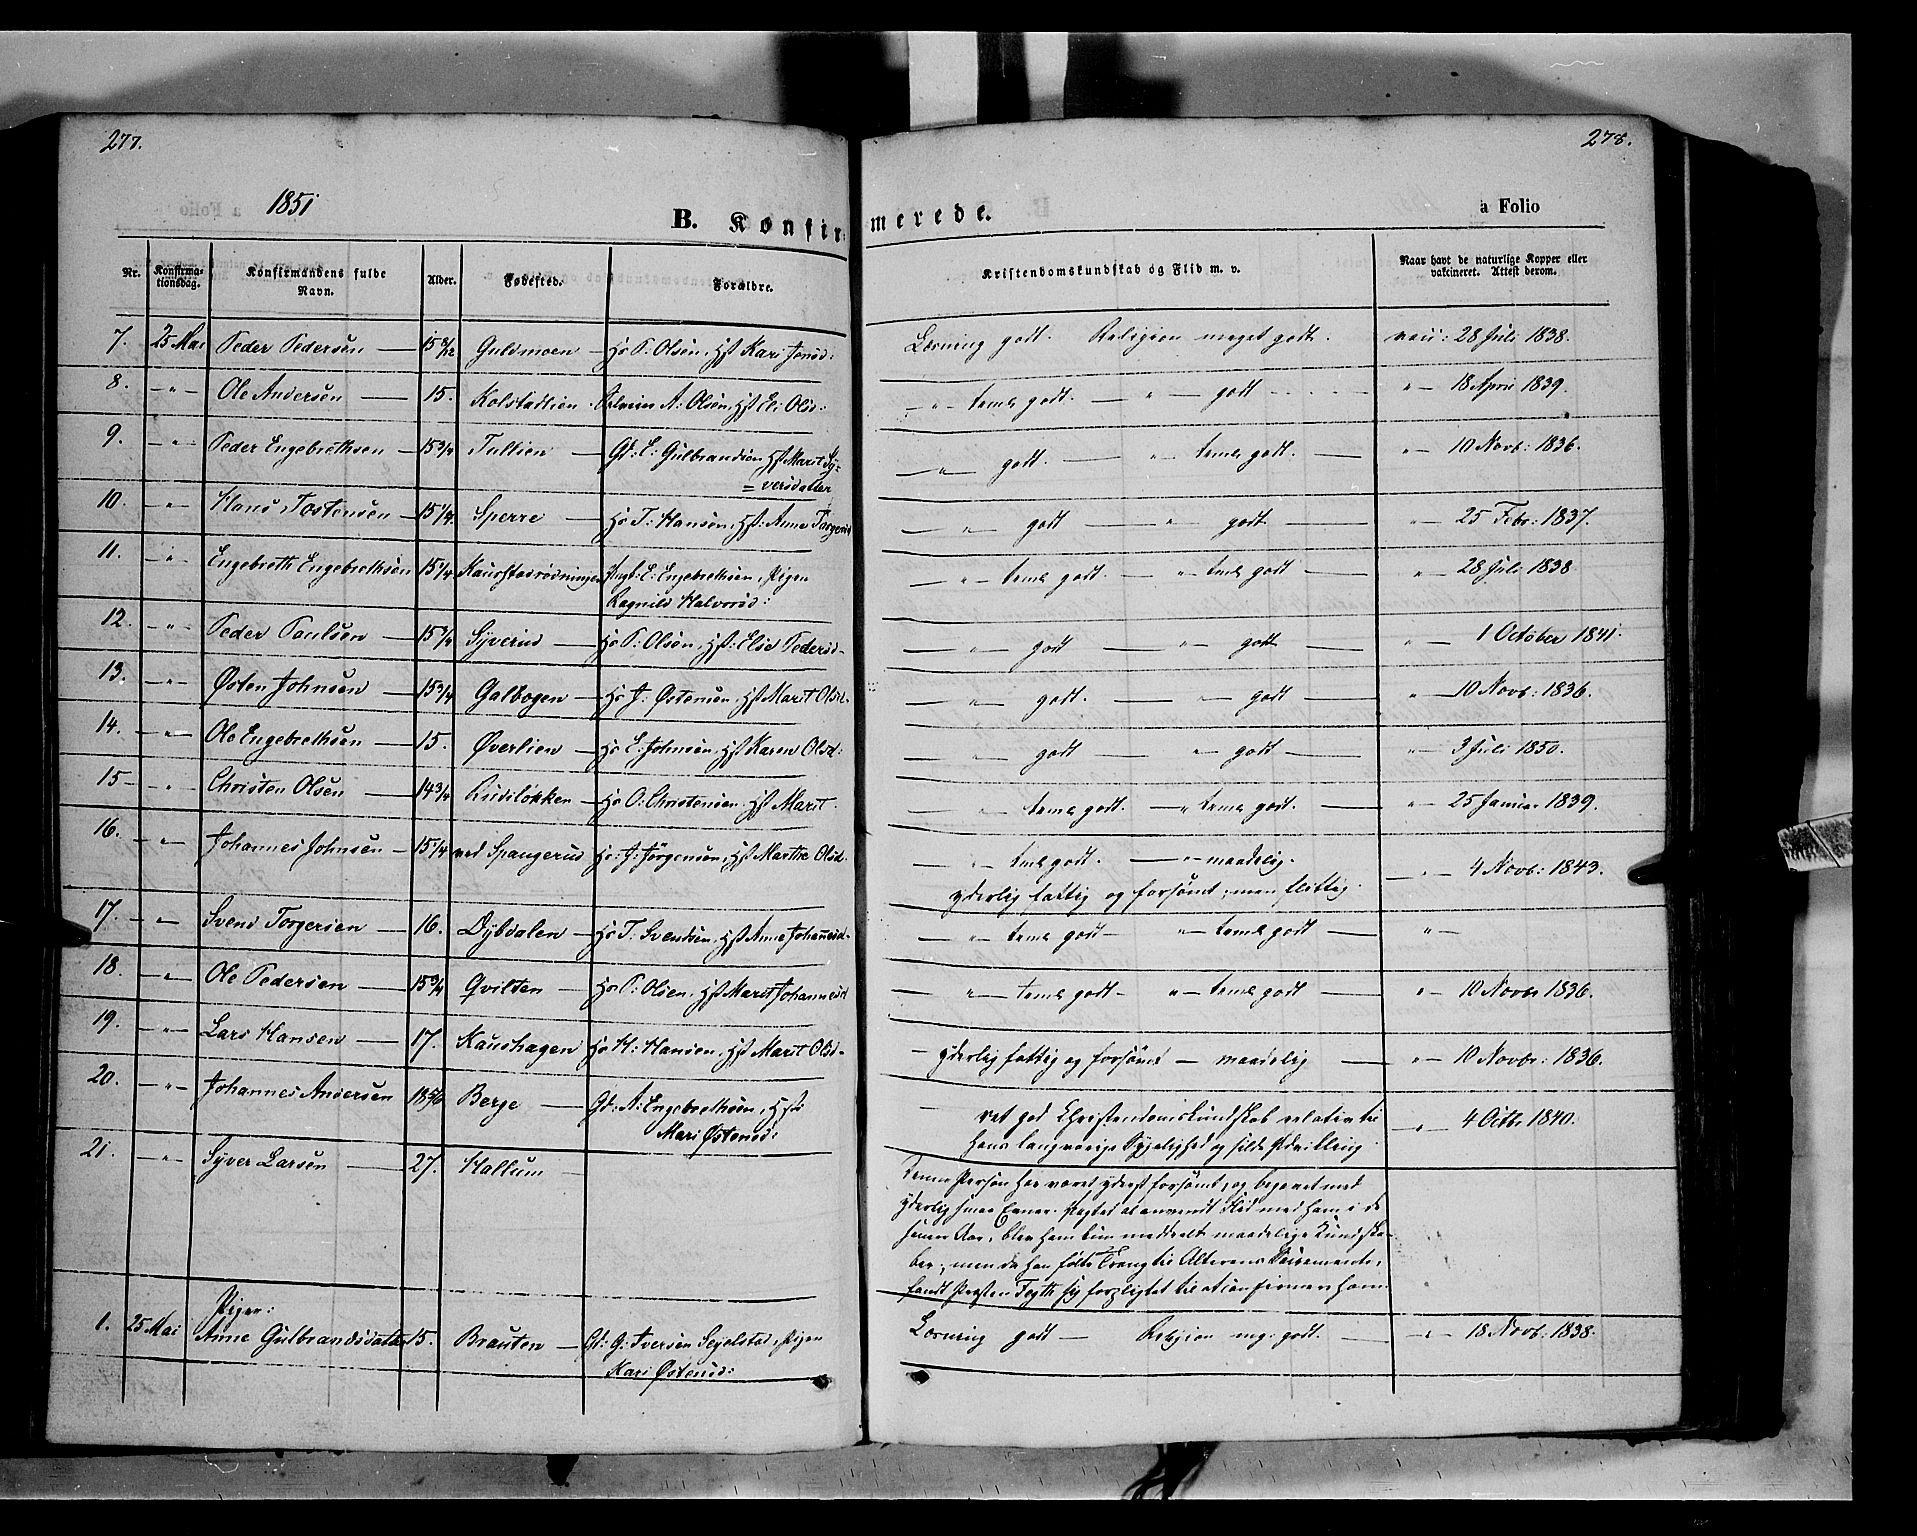 277.
278.
1851
B. Konfirmerede.
a Folio
Nr. Konfirmationsdag. Konfirmandens fulde Navn. Alder. Fødested. Forældre. Kristendomskundskab og Flid m. v. Naar havt de naturlige Kopper eller vakcineret. Attest derom.
7. 25 Mai Peder Pedersen — 15 Guldmoen — Ho P: Olsen, Hst Kari Jonsd: Læsning godt. Religion meget godt. vac: 28 Juli 1838.
8. — " — Ole Andersen — 15. Kolstadeien A: Olsen, Hst Eli Olsd: — " — temlt godt. — " — godt " — 18 April 1839.
9. — " — Peder Engebrethsen — 15 3/4 Tullien — Gd: E: Gulbrandsen Hst Marit Sy=
=versdatter
— " — godt. — " temlt godt. — " — 10 Novb: 1836.
10. " Hans Tostensen — 15 1/4 Sperre — Ho T: Hansen, Hst: Anne Torgersd — " — godt — " — godt — " — 25 Febr: 1837.
11. " Engebreth Engebrethsen 15 1/4 Ungk: E: Engebrethsen, Pigen
Ragnild Halvorsd:
— " — temlt godt. — " — temlt godt — " — 28 Juli 1838
12. " Peder Paulsen — 15 3/4 Syverud — Ho P: Olsen, Hst: Else Pedersd — — " — godt — " — godt " — 1 October 1841.
13. — " — Østen Johnsen — 15 3/4 Galbogen — Ho J: Østensen, Hst Marit Olsd. — " — godt. — " — godt — " — 10 Novb: 1836.
14. — " — Ole Engebrethsen — 15. Øverlien — Ho E: Johnsen, Hst Karen Olsd: — " — godt — " — godt — " — 3 Juli 1850.
15 — " — Christen Olsen — 14 3/4 Rudsløkken — Ho O: Christensen, Hst Marit. " — temlt godt. — " temlt godt. — " — 25 Januar 1839.
16. — " — Johannes Johnsen — 15 1/4 ved Spangerud Ho: J: Jörgensen, Hst Marthe Olsd. — " — temlt godt. — " — maadelig.
yderlig fattig og forsömt, men flittig. — " — 4 Novb: 1843.
17. — " — Svend Torgersen — 16. Dybdalen — Ho T: Svendsen, Hst Anne Johannesd — — " — temlt godt — " — temlt godt — " —
18. — " — Ole Pedersen — 15 3/4 Qvilten — Ho P: Olsen, Hst Marit Johannesd — " — temlt godt — " — temlt godt — " — 10 Novbr 1836.
19. — " — Lars Hansen — 17. Kaushagen Ho H: Hansen, Hst Marit Olsd — — yderlig fattig og forsömt — maadelig — " — 10 Novbr: 1836.
20. — " — Johannes Andersen Berge — Gd: A: Engebrethsen, Hst:
Mari Østensd:
ret god Christendomskundskab relativ til
hans langvarige Sygelighed og sildige Udvikling. — " — 4 Octb 1840.
21. — " — Syver Larsen — 27. Hallum —
Denne Person har været yderst forsömt, og begavet med
yderlig smaa Evner. Uagtet al anvendt Flid med ham i de
senere Aar, blev ham kun meddeelt maadelige Kundska=
ber; men da han fölte Trang til Alterens Sacramente,
fandt Presten Fogth sig forpligtet til at confirmere ham.
Piger:
1. 25 Mai Anne Gulbrandsdatter 15. Brauten — Gd: G: Iversen Segelstad, Pigen
Kari Østensd:
Læsning godt — Religion mg. godt. — " — 18 Novb: 1838.